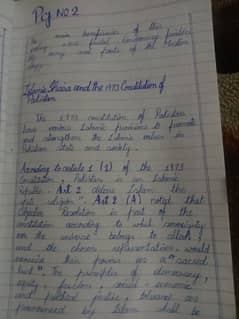 Pg NO 2
The main beneficiaries of this
policy were feudal, landowning families
the army and parts of the Muslim
clergy.
Islamic Sharia and the 1973 Constitution of
Pakistan
The 1973 constitution of Pakistan
has various Islamic provisions to promote
and strengthen the Islamic values in
Pakistan state and society.
According to article 1 (1) of the 1973
Constitution, Pakistan is an Islamic
Republic. Art 2 declares Islam the
state religion". Art 2 (A) noted that
Objective Resolution is part of the
constitution according to which sovereignty
over the universe belongs to Allah
and the chosen representatives would
exercise their powers as a "sacred
trust". The principles of democracy,
equity, freedom, social-economic
and political justice, tolerance as
pronounced by Islam shall be